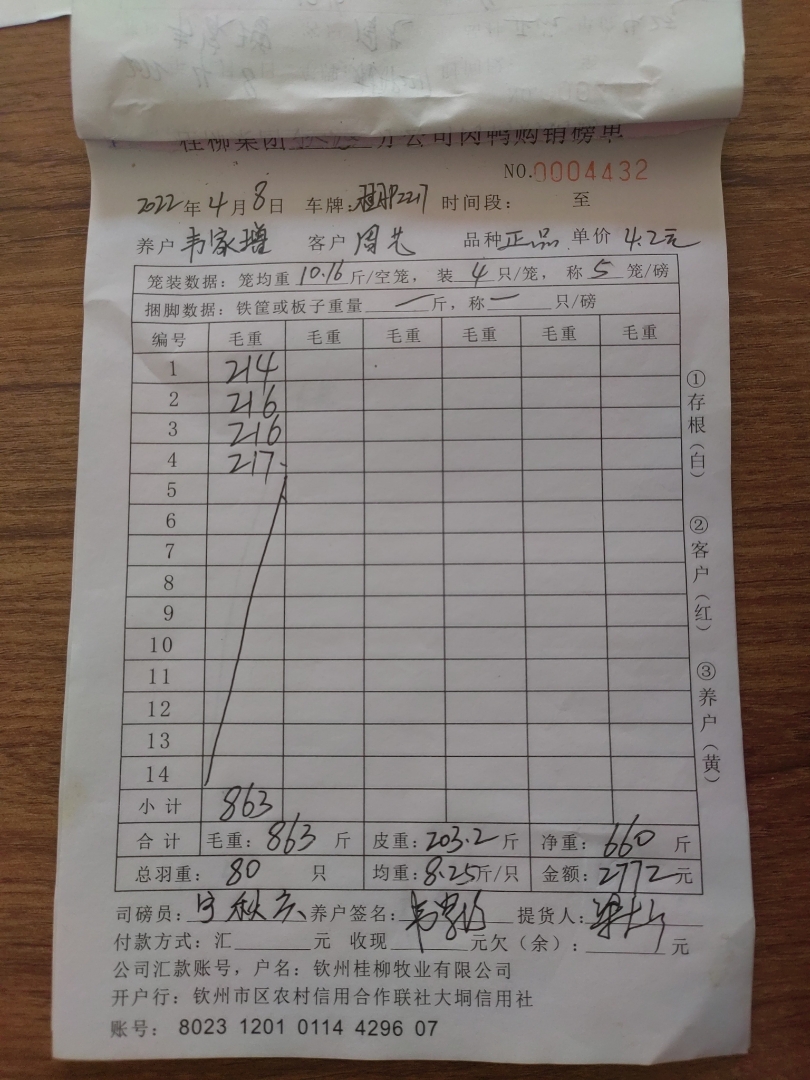 桂柳集团 分公司肉鸭购销磅单
NO.0004432
2022年4月8日 车牌: 时间段: 至
养户 韦家增 客户 周芝 品种 正品 单价 4.2元
笼装数据: 笼均重 10.16 斤/空笼, 装 4 只/笼, 称 5 笼/磅
捆脚数据: 铁筐或板子重量 一 斤, 称 一 只/磅
编号 毛重 毛重 毛重 毛重 毛重 毛重
1 214
2 216
3 216
4 217
5
6
7
8
9
10
11
12
13
14
小计 863
合计 毛重: 863 斤 皮重: 203.2 斤 净重: 660 斤
总羽重: 80 只 均重: 8.25斤/只 金额: 2772元
司磅员: 养户签名: 提货人:
付款方式: 汇 元 收现 元欠(余): 元
公司汇款账号, 户名: 钦州桂柳牧业有限公司
开户行: 钦州市区农村信用合作联社大垌信用社
账号: 8023 1201 0114 4296 07
①存根(白)
②客户(红)
③养户(黄)